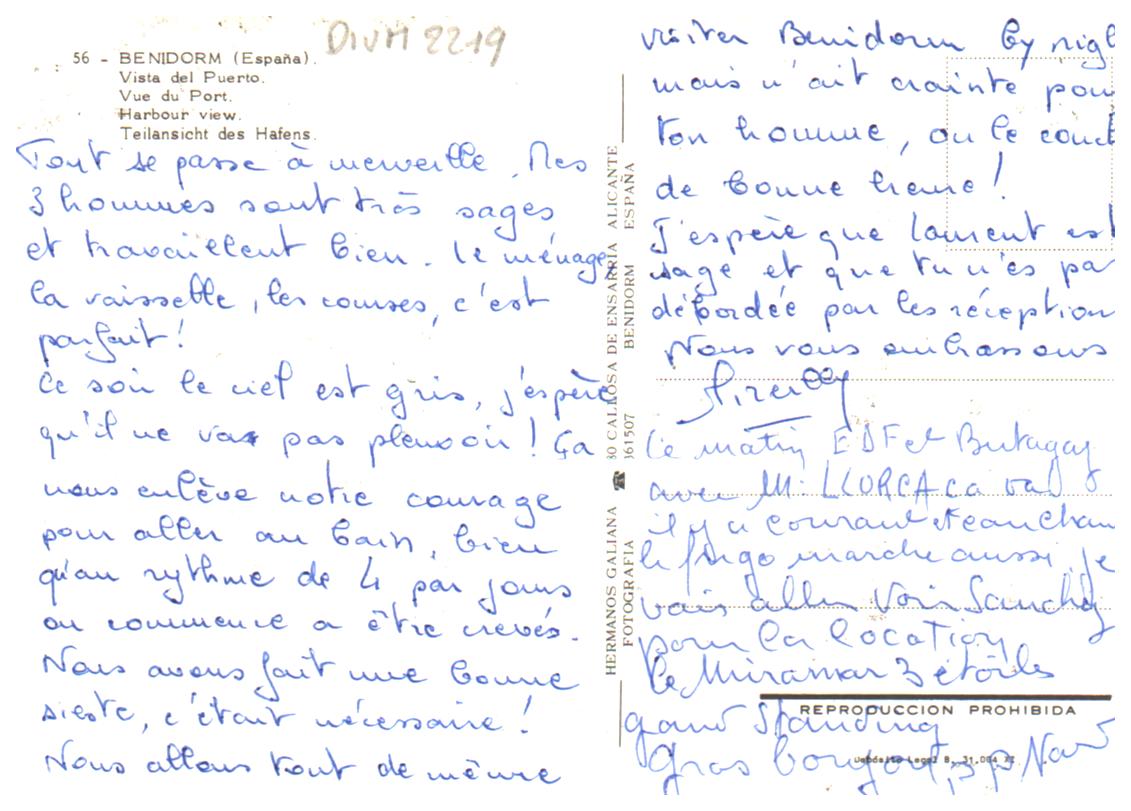 DIVM 2219
56 - BENIDORM (España).
Vista del Puerto.
Vue du Port.
Harbour view.
Teilansicht des Hafens.
Tout se passe à merveille. Mes
3 hommes sont très sages
et travaillent bien. Le ménage
la vaisselle, les courses, c'est
parfait!
Ce soir le ciel est gris, j'espère
qu'il ne va pas pleuvoir! Ça
nous enlève notre courage
pour aller au bain, bien
qu'au rythme de 4 par jours
on commence a être crevés.
Nous avons fait une bonne
sieste, c'était nécessaire!
Nous allons tout de même
HERMANOS GALIANA ☎ 361507 BENIDORM ESPAÑA
FOTOGRAFIA
CALLOSA DE ENSARRIA ALICANTE
visiter Benidorm by nigh
mais n'ait crainte pour
ton homme, on le couch
de bonne heure!
J'espère que Laurent est
sage et que tu n'es pa
débordée par les réception
Nous vous embrassons
Mireilly
Ce matin EDF et Butagaz
avec Mr LLORCA ca va
il y a courant et eau chau
le frigo marche aussi, je
vais aller voir Sanchez
pour la location
le Miramar 3 étoiles
grand Standing
Gros
REPRODUCCION PROHIBIDA
Depósito Legal B. 31.004